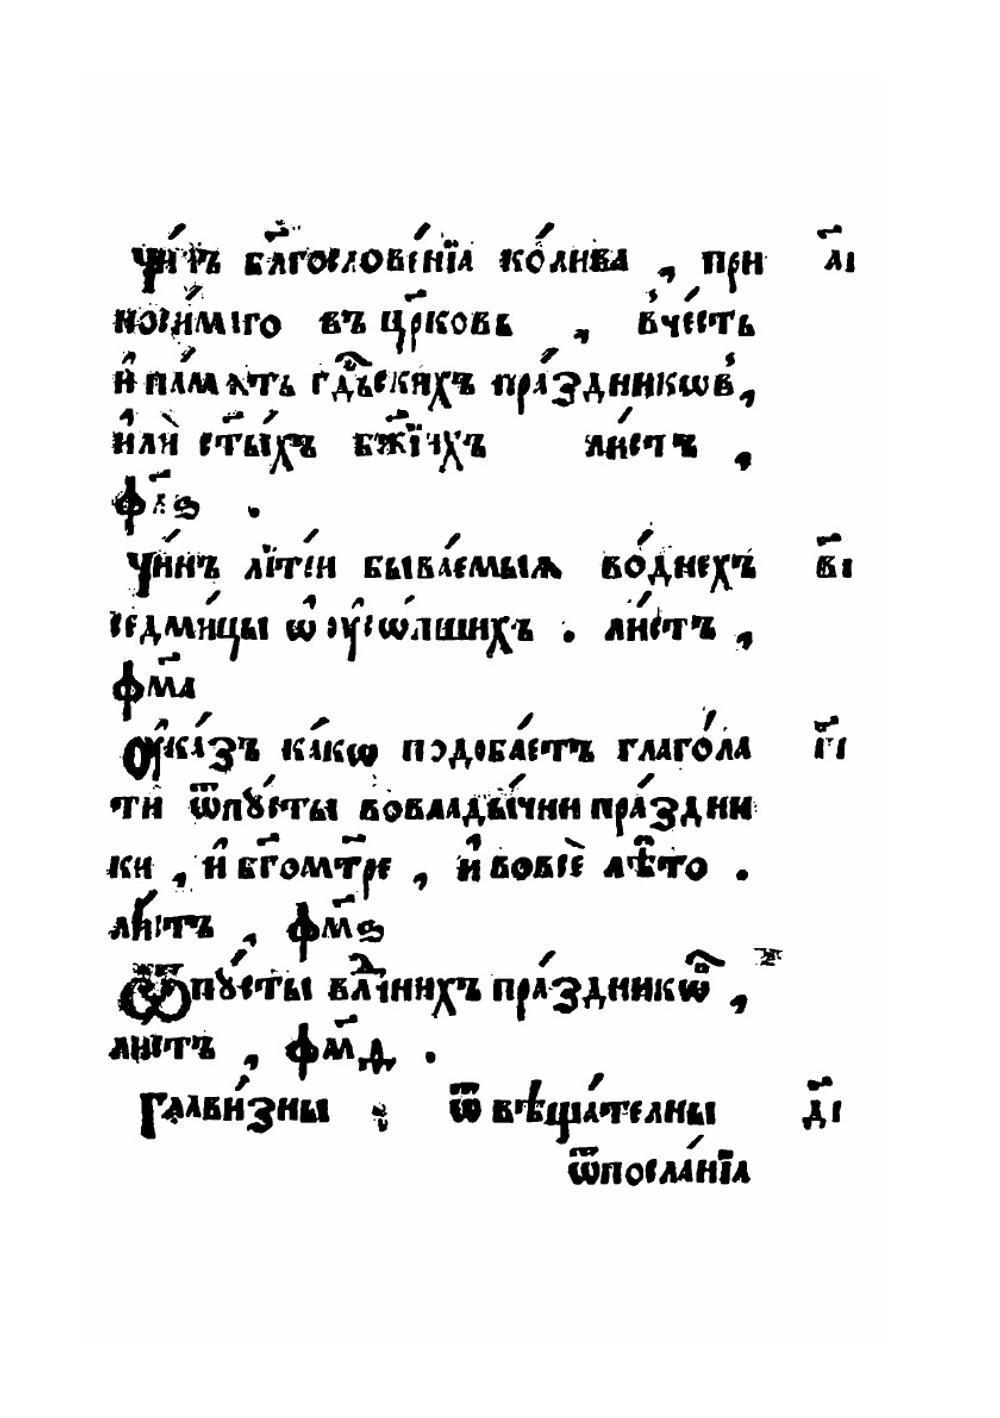 Чи́нъ бл҃гословє́нїѧ ко́лива , при а҃і
носи́маго въ цр҃ковь , в̾че́сть
и҆ па́мѧть гдⷭ҇ьскихъ пра́здникѡв̾,
и҆лѝ ст҃ы́хъ бж҃їихъ ли́стъ ,
ф҃л҃ѕ .
Чи́нъ лїті́и быва́емыѧ во́днехъ в҃і
седми́цы ѡ҆ ᲂу҆сѡ́пшихъ . ли́стъ ,
фм҃а
Оу҆ка́зъ ка́кѡ подоба́етъ глаго́ла г҃і
ти ѿпꙋ́сты вовлады́чни пра́здни
ки , и҆ бг҃ом҃тре , и҆ вовсѐ лѣ́то .
ли́стъ , фм҃ѕ
Ѿпꙋ́сты влⷣчнихъ пра́здникѡв̾ ,
ли́стъ , фм҃д .
Глави́зны ѿвѣща́телны д҃і
ѿпосла́нїѧ